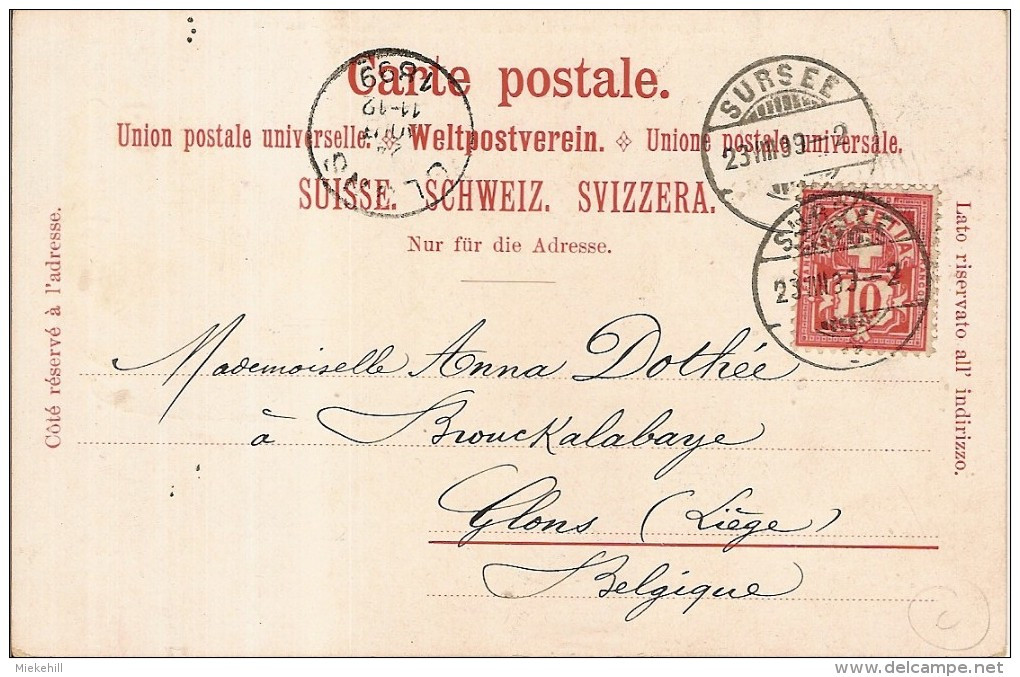 Carte postale.
Union postale universelle. Weltpostverein. Unione postale universale.
SUISSE. SCHWEIZ. SVIZZERA.
Nur für die Adresse.
Côté réservé à l'adresse.
Lato riservato all' indirizzo.
SURSEE
23 VIII 99 - 2
SURSEE
23 VIII 99 - 2
HELVETIA
FRANCO
10
1899
11-12
Mademoiselle Anna Dothée
à Brouckalabaye
Glons (Liège)
Belgique
Miekehill
delcampe.net